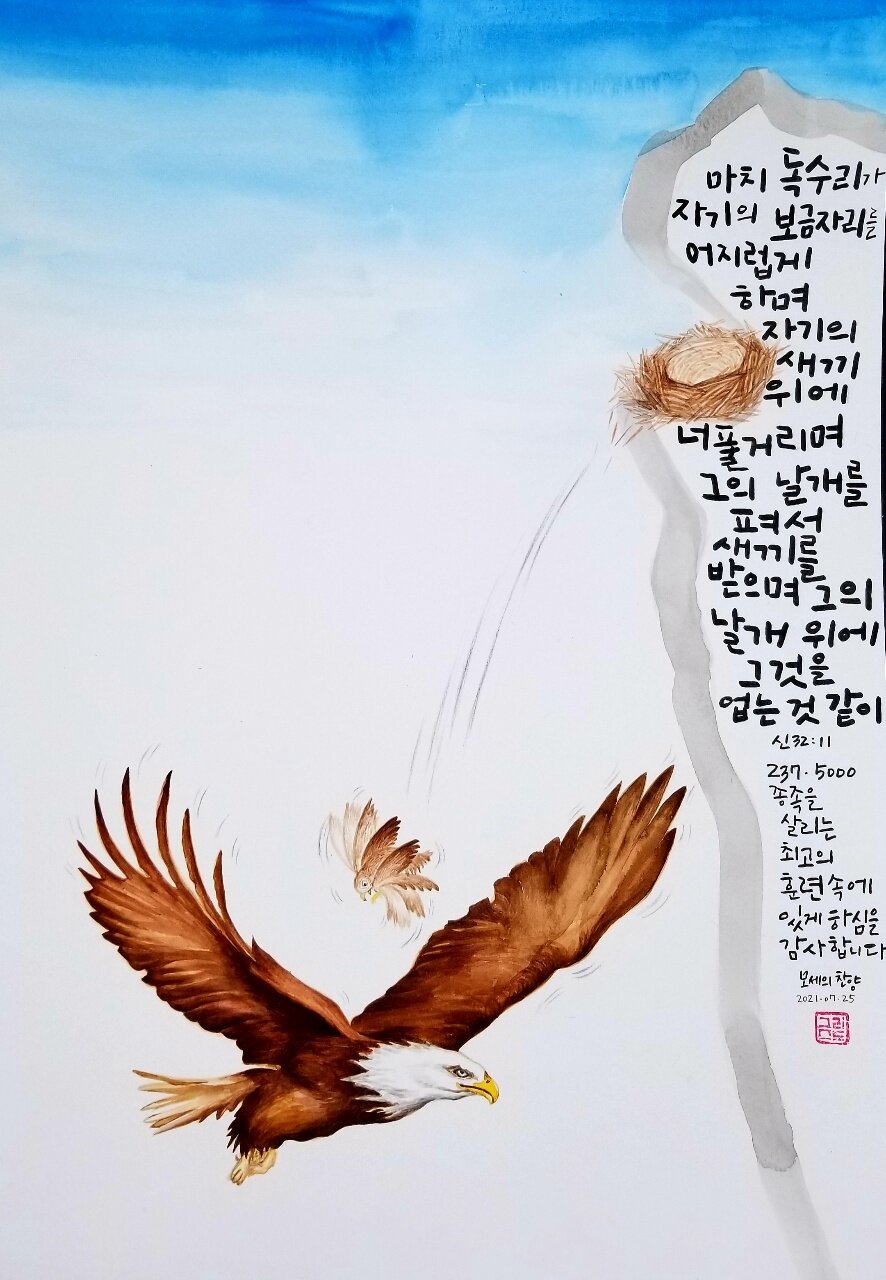 마치 독수리가
자기의 보금자리를
어지럽게
하며
자기의
새끼
위에
너풀거리며
그의 날개를
펴서
새끼를
받으며 그의
날개 위에
그것을
업는 것 같이
신32:11
237·5000
종족을
살리는
최고의
훈련속에
있게 하심을
감사합니다
모세의 찬양
2021.07.25